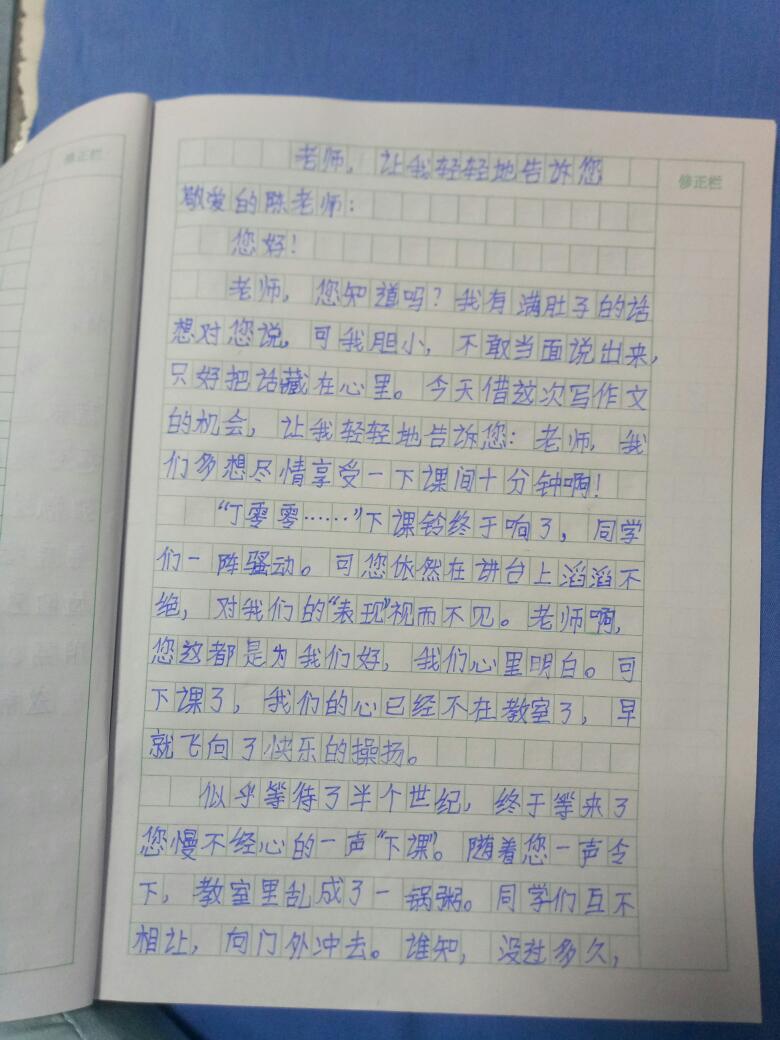 修正栏
老师，让我轻轻地告诉您
修正栏
敬爱的陈老师：
您好！
老师，您知道吗？我有满肚子的话
想对您说，可我胆小，不敢当面说出来，
只好把话藏在心里。今天借这次写作文
的机会，让我轻轻地告诉您：老师，我
们多想尽情享受一下课间十分钟啊！
“丁零零……”下课铃终于响了，同学
们一阵骚动。可您依然在讲台上滔滔不
绝，对我们的“表现”视而不见。老师啊，
您这都是为我们好，我们心里明白。可
下课了，我们的心已经不在教室了，早
就飞向了快乐的操场。
似乎等待了半个世纪，终于等来了
您慢不经心的一声“下课”。随着您一声令
下，教室里乱成了一锅粥。同学们互不
相让，向门外冲去。谁知，没过多久，